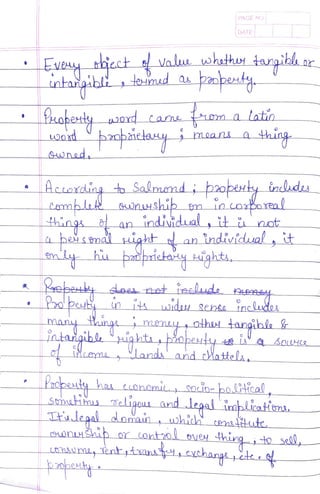 PAGE NO.
DATE
• Every object of value whether tangible or
intangible, termed as property.
• Property word came from a latin
word proprietary ; means a thing
owned.
• According to Salmond ; property includes
complete ownership on incorporeal
things of an individual, it is not
a personal right of an individual, it
only his proprietary rights.
• Property does not include money
• Property in its wider sense includes
many things ; money, other tangible &
intangible rights, property is a source
of income, lands and chattels.
• Property has economic, socio-political,
sometimes religous and legal implications.
It's legal domain, which constitute
ownership or control over thing, to sell,
consume, rent, transfer, exchange, etc. of
property.